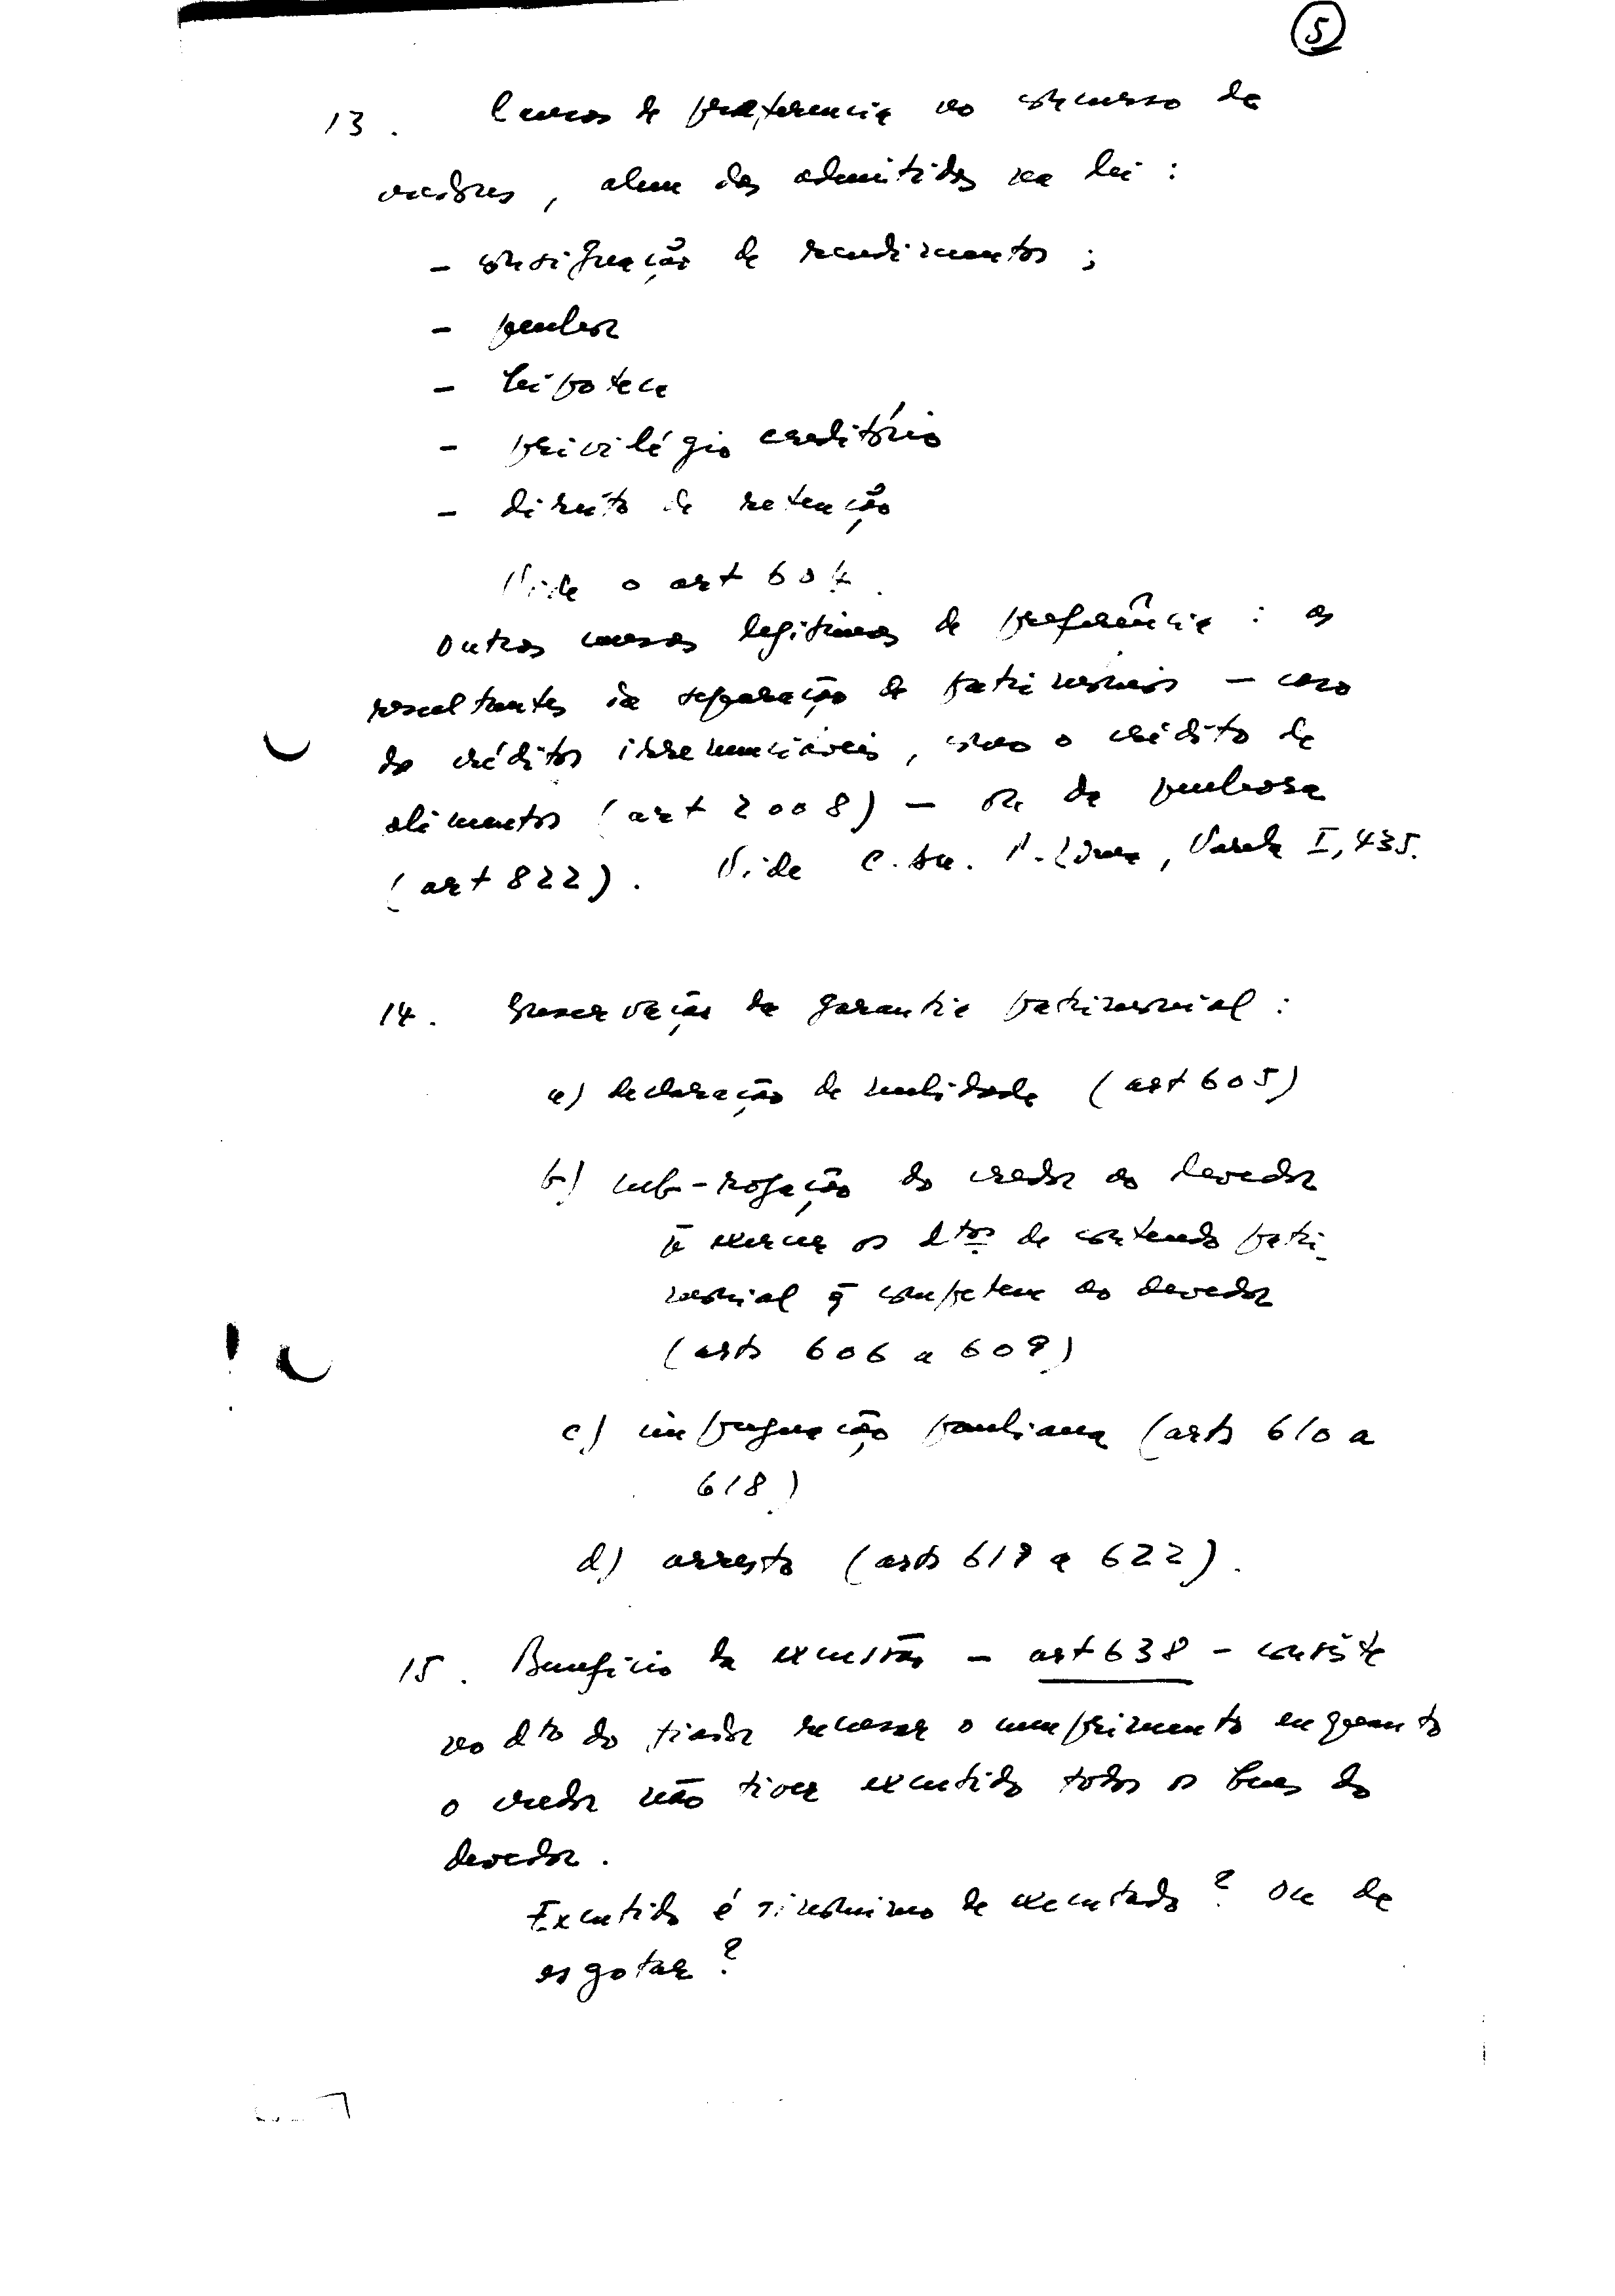 5
13. Causas de preferencia no concurso de
credores, alem das admitidas na lei :
- consignação de rendimentos ;
- penhor
- hipoteca
- privilégio creditório
- direito de retenção
Vide o art 604.
Outras causas legitimas de preferência : as
resultantes da separação de patrimonios - caso
de créditos irrenunciáveis, como o crédito de
alimentos (art 2008) - ou da penhora
(art 822). Vide C. An. P. Lima, Varela I, 435.
14. Conservação da garantia patrimonial :
a) declaração de nulidade (art 605)
b) sub-rogação do credor ao devedor
p̄ exercer os dtos de conteudo patri-
monial q̄ competem ao devedor
(arts 606 a 609)
c) impugnação pauliana (arts 610 a
618)
d) arresto (arts 619 a 622).
15. Beneficio da excussão - art 638 - consiste
no dto do fiador recusar o cumprimento enquanto
o credor não tiver excutido todos os bens do
devedor.
Excutido é sinonimo de executado? Ou de
esgotar?